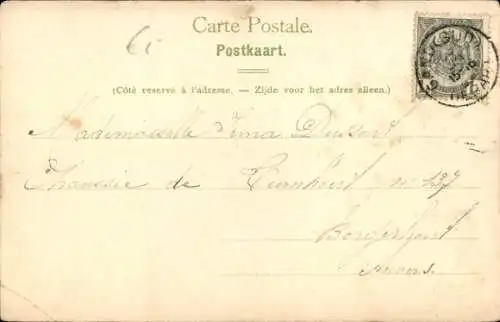 Carte Postale.
Postkaart.
(Côté reservé à l'adresse. — Zijde voor het adres alleen.)
Mademoiselle
Chaussée de Turnhout n° 127
Borgerhout
Anvers.